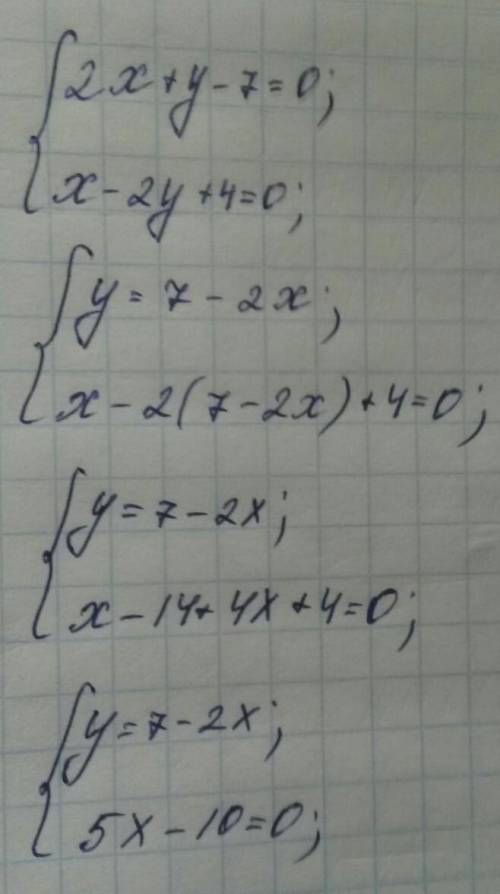 2x+y-7=0;
x-2y+4=0;
y=7-2x;
x-2(7-2x)+4=0;
y=7-2x;
x-14+4x+4=0;
y=7-2x;
5x-10=0;